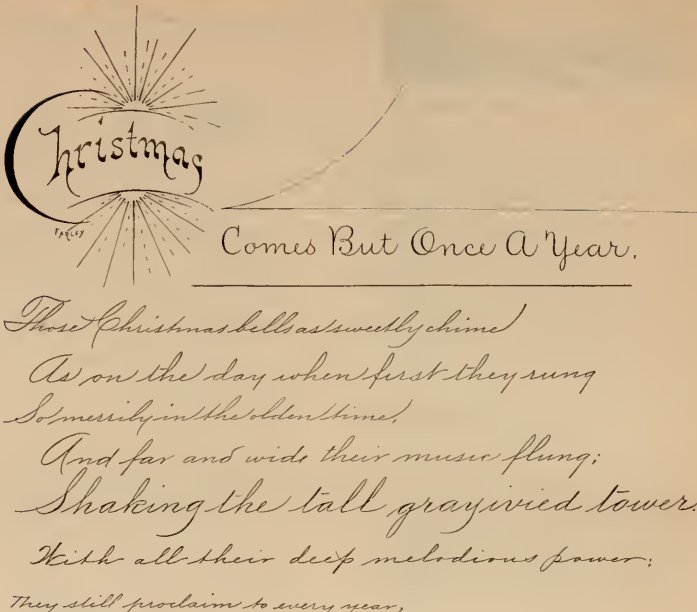 Christmas
FARLEY
Comes But Once A Year.
Those Christmas bells as sweetly chime
As on the day when first they rung
So merrily in the olden time,
And far and wide their music flung;
Shaking the tall gray ivied tower,
With all their deep melodious power;
They still proclaim to every year,